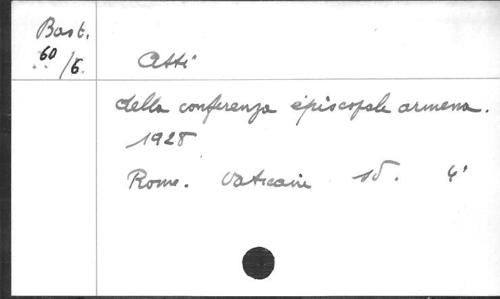 Bast.
60/6.
Atti
della conferenza épiscopale armena.
1928
Rome. Vaticaine 4°